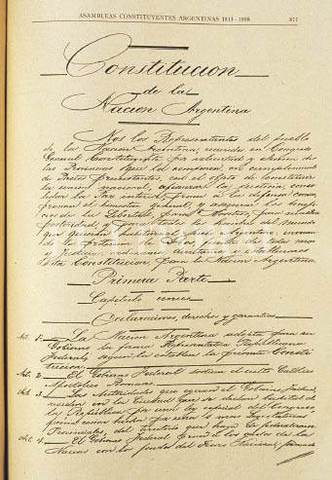 ASAMBLEAS CONSTITUYENTES ARGENTINAS 1813 - 1898
877
Constitucion
de la
Nacion Argentina
Nos los Representantes del pueblo
de la Nacion Argentina, reunidos en Congreso
General Constituyente por voluntad y eleccion de
las Provincias que la componen, en cumplimiento
de Pactos preexistentes, con el objeto de constituir
la union nacional, afianzar la justicia, conso-
lidar la paz interior, proveer a la defensa comun,
promover el bienestar general, y asegurar los benefi-
cios de la libertad, para nosotros, para nuestra
posteridad, y para todos los hombres del mundo
que quieran habitar el suelo Argentino: invocan-
do la proteccion de Dios, fuente de toda razon
y justicia; ordenamos, decretamos y establecemos
esta Constitucion, para la Nacion Argentina
Primera Parte
Capitulo unico
Declaraciones, derechos y garantias
Art. 1. La Nacion Argentina adopta para su
Gobierno la forma Representativa Republicana
Federal, segun la establece la presente Consti-
tucion
Art. 2. El Gobierno Federal sostiene el culto Catolico
Apostolico Romano.
Art. 3. Las Autoridades que ejercen el Gobierno Federal,
residen en la Ciudad que se declare Capital de
la Republica por una ley especial del Congreso,
previa cesion hecha por una o mas Legislaturas
Provinciales, del territorio que haya de federalizarse
Art. 4. El Gobierno Federal provee a los gastos de la
Nacion con los fondos del Tesoro Nacional, formado